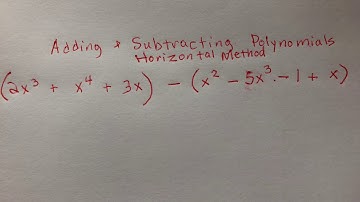 Adding & Subtracting Polynomials
Horizontal Method
(2x³ + x⁴ + 3x) - (x² - 5x³ - 1 + x)